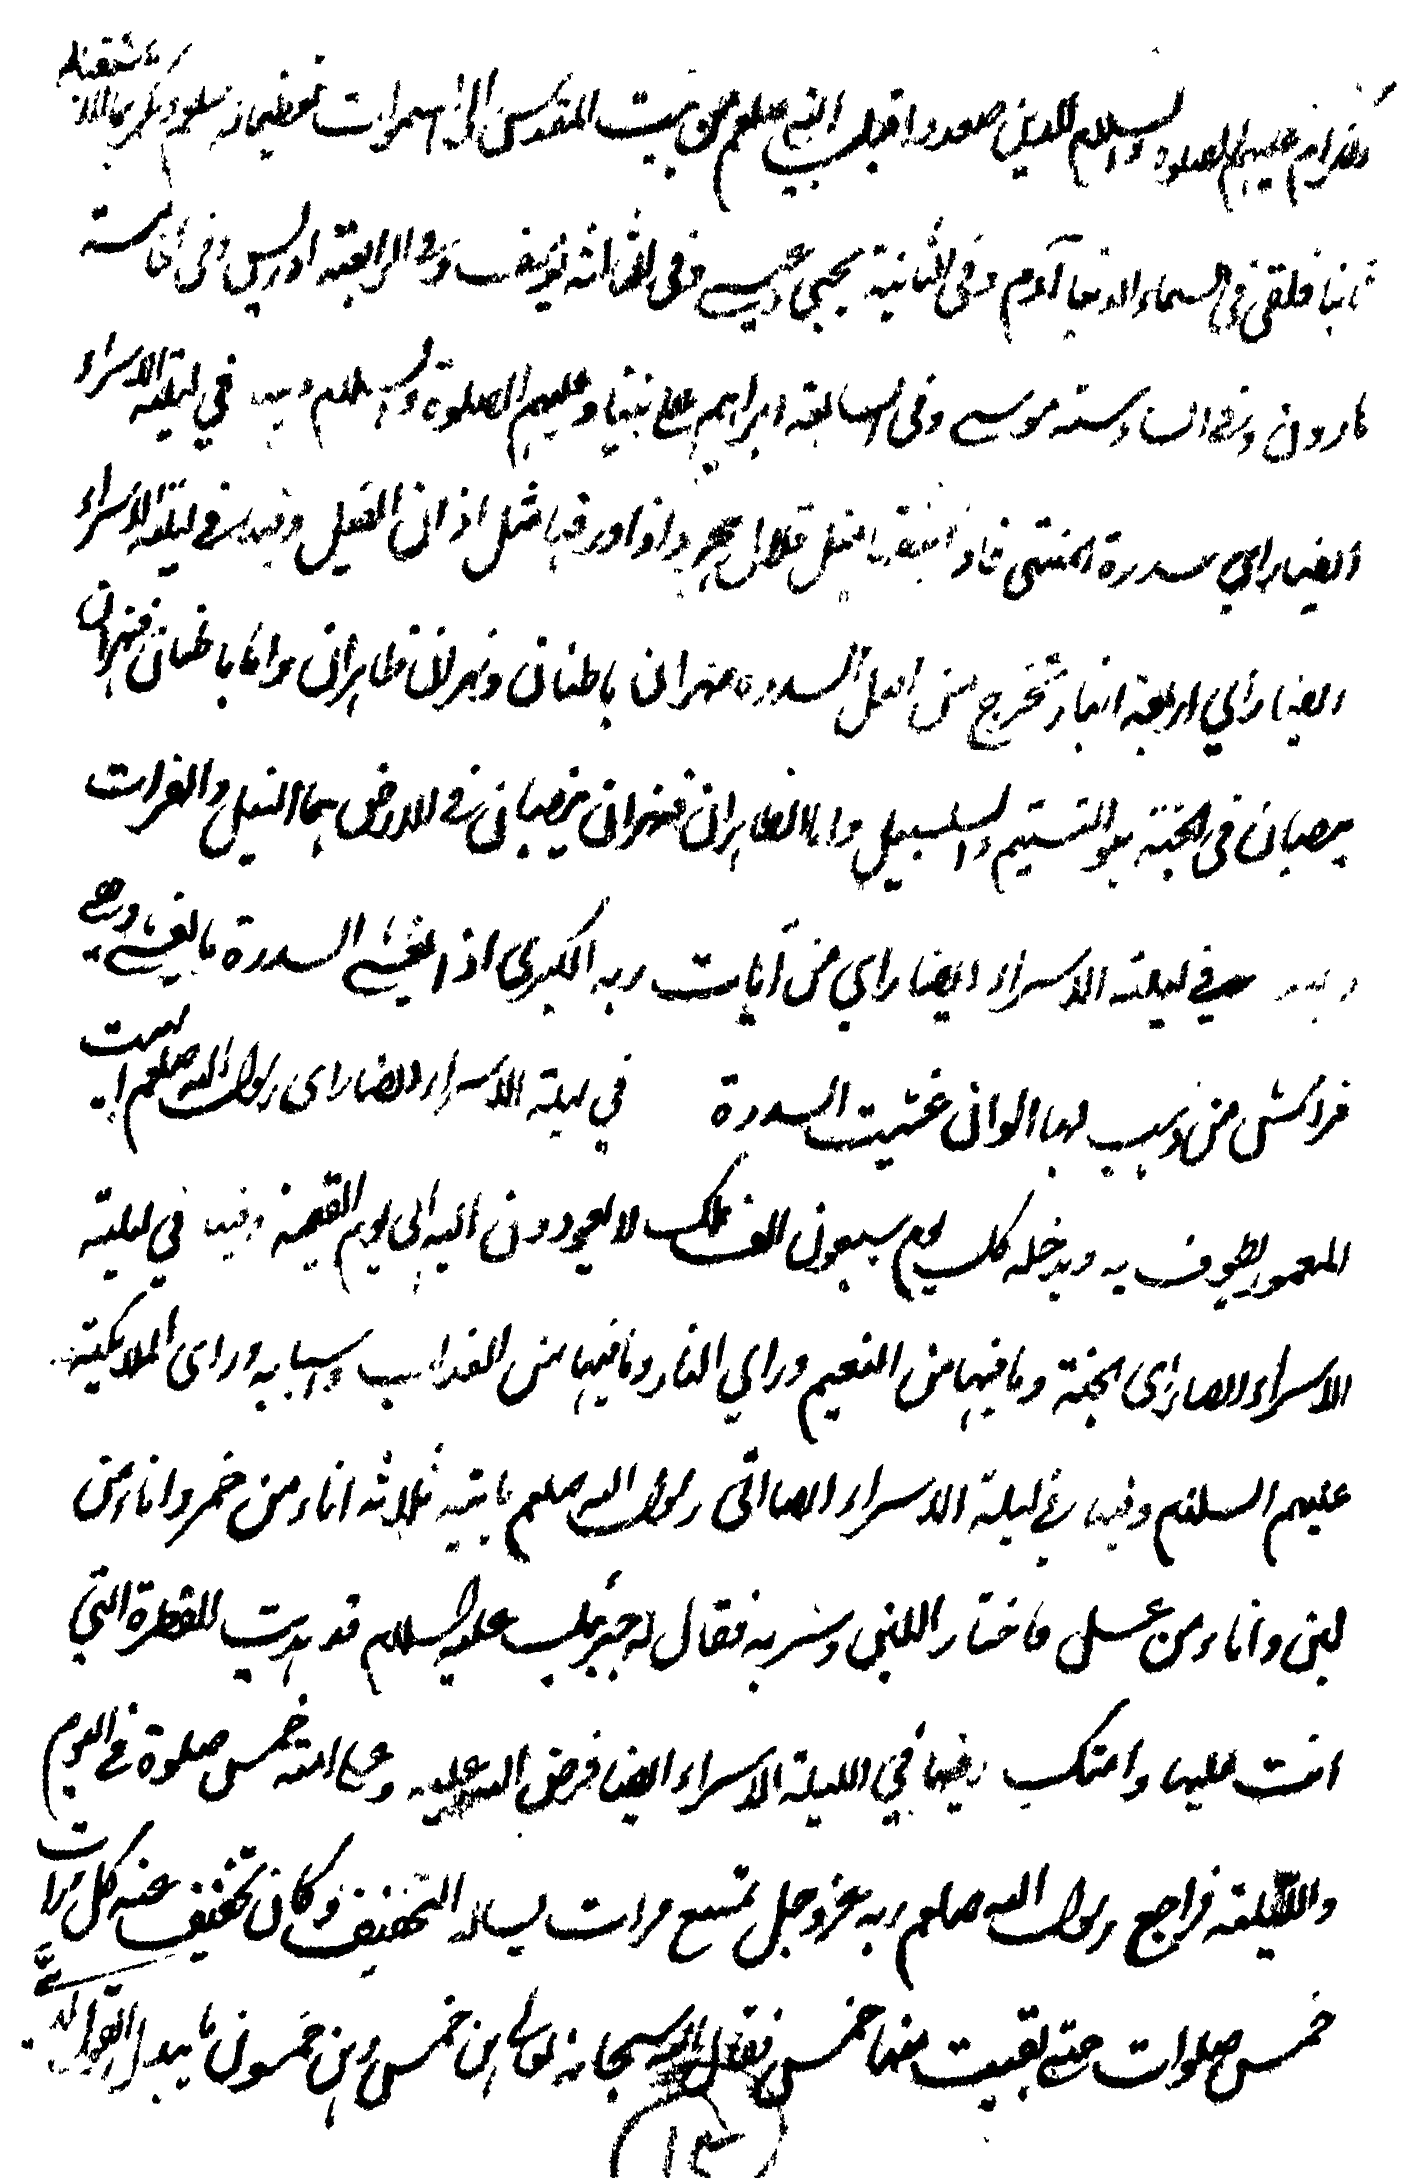 الكرام عليهم الصلوة والسلام الذين صعدوا قبل النبي صلعم من بيت المقدس الى السموات تعظيما له صلعم وتكريما لاستقباله
ثانيا فلقى في السماء الدنيا آدم وفي الثانية يحيى وعيسى وفى الثالثة يوسف وفي الرابعة ادريس وفى الخامسة
هارون وفي السادسة موسى وفى السابعة ابراهيم على نبينا وعليهم الصلوة والسلام وفيها في ليلة الاسراء
ايضا راى سدرة المنتهى فاذا نبقها مثل قلال هجر واذا ورقها مثل اذان الفيل وفيها في ليلة الاسراء
ايضا راى اربعة انهار تخرج من اصل السدرة نهران باطنان ونهران ظاهران واما باطنان فنهران
يصبان في الجنة هو التسنيم والسلسبيل واما الظاهران فنهران يصبان في الارض هما النيل والفرات
وفيها في ليلة الاسراء ايضا راى من آيات ربه الكبرى اذ يغشى السدرة ما يغشى وهي
فراش من ذهب لها الوان غشيت السدرة في ليلة الاسراء ايضا راى رسول الله صلعم البيت
المعمور يطوف به ويدخله كل يوم سبعون الف ملك لا يعودون اليه الى يوم القيمة وفيها في ليلة
الاسراء ايضا راى الجنة وما فيها من النعيم وراى النار وما فيها من العذاب واسبابه وراى الملائكة
عليهم السلام وفيها في ليلة الاسراء ايضا اتى رسول الله صلعم بآنية ثلاثة اناء من خمر واناء من
لبن واناء من عسل فاختار اللبن وشربه فقال له جبرئيل عليه السلام قد هديت للفطرة التي
انت عليها وامتك وفيها في الليلة الاسراء ايضا فرض الله عليه وعلى امته خمس صلوة في اليوم
والليلة فراجع رسول الله صلعم ربه عز وجل تسع مرات يسال التخفيف وكان تخفيف عنه كل مرات
خمس صلوات حتى بقيت منها خمس فقال الله سبحانه تعالى هن خمس وهن خمسون ما يبدل القول لدي